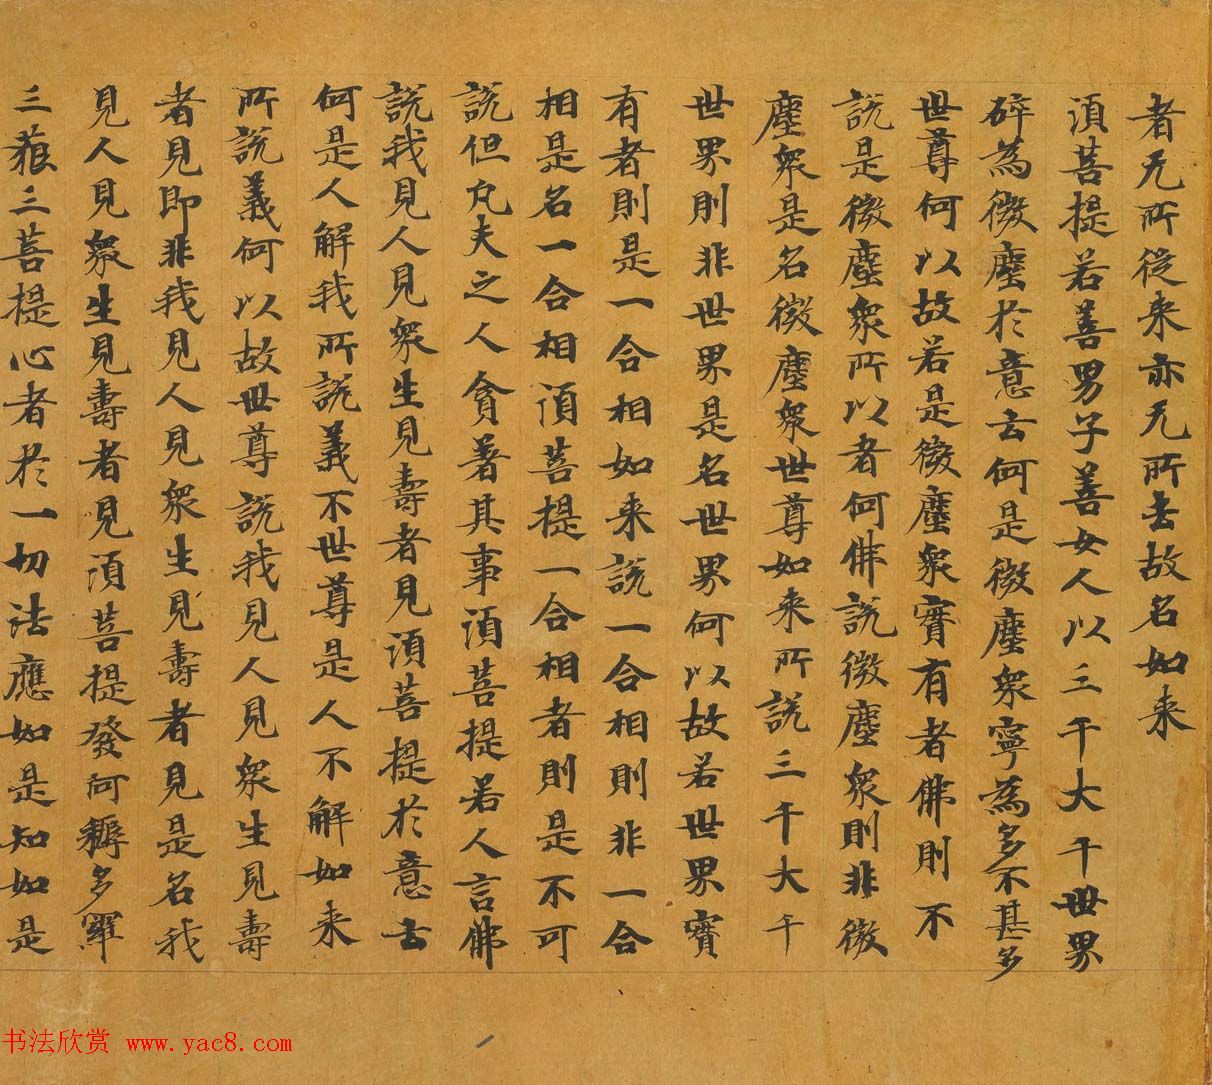 者无所從来亦无所去故名如来
湏菩提若善男子善女人以三千大千世界
碎為微塵於意云何是微塵衆寧為多不甚多
世尊何以故若是微塵衆實有者佛則不
說是微塵衆所以者何佛說微塵衆則非微
塵衆是名微塵衆世尊如来所說三千大千
世界則非世界是名世界何以故若世界實
有者則是一合相如来說一合相則非一合
相是名一合相湏菩提一合相者則是不可
說但凡夫之人貪著其事湏菩提若人言佛
說我見人見衆生見壽者見湏菩提於意云
何是人解我所說義不世尊是人不解如来
所說義何以故世尊說我見人見衆生見壽
者見即非我見人見衆生見壽者見是名我
見人見衆生見壽者見湏菩提發阿耨多羅
三藐三菩提心者於一切法應如是知如是
书法欣赏 www.yac8.com